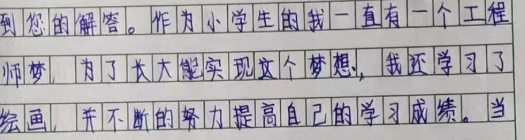 到您的解答。作为小学生的我一直有一个工程
师梦，为了长大能实现这个梦想，我还学习了
绘画，并不断的努力提高自己的学习成绩。当